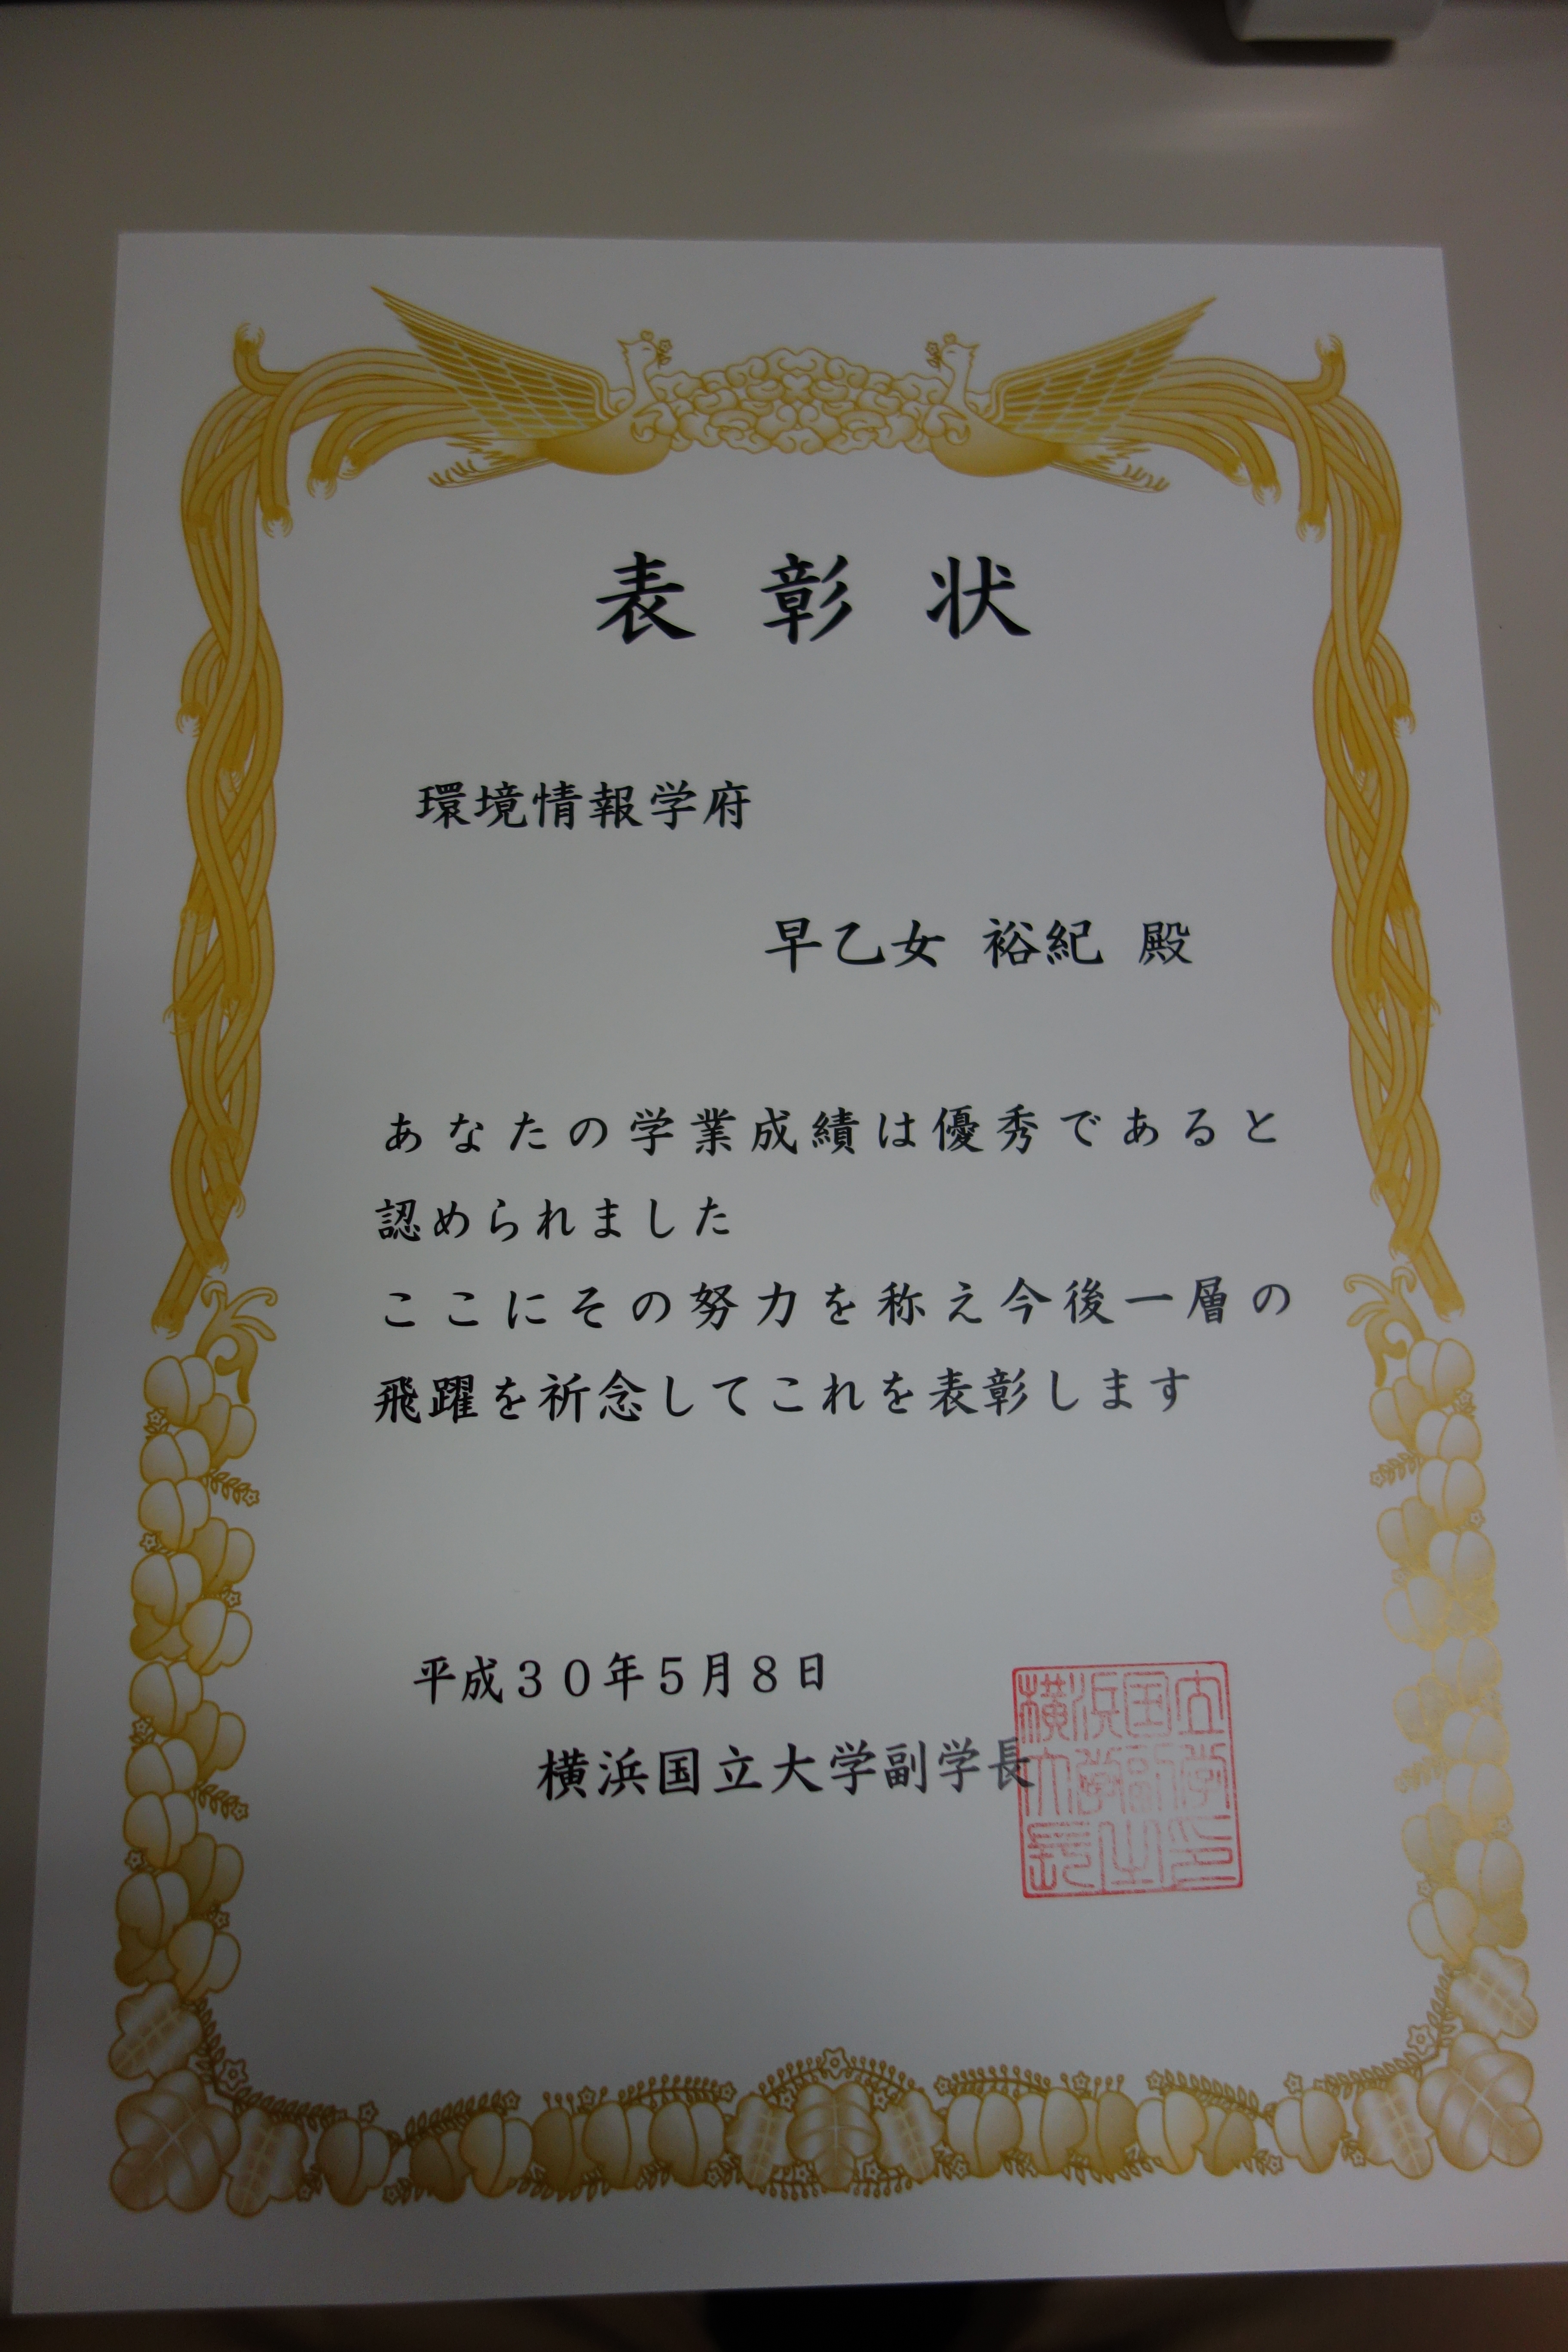 表彰状
環境情報学府
早乙女 裕紀 殿
あなたの学業成績は優秀であると
認められました
ここにその努力を称え今後一層の
飛躍を祈念してこれを表彰します
平成３０年５月８日
横浜国立大学副学長
横浜国立
大学副学
長之印